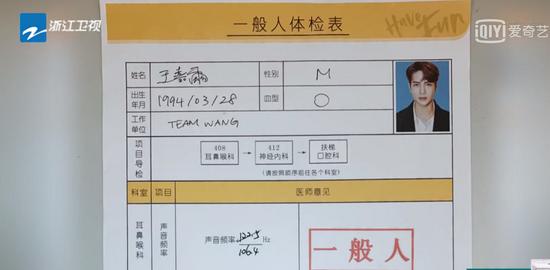 浙江卫视
一般人体检表
Have Fun
iQIYI 爱奇艺
姓名 王嘉爾 性别 M
出生年月 1994/03/28 血型 O
工作单位 TEAM WANG
项目导检 408 耳鼻喉科 → 412 神经内科 → 扶梯 口腔科
(请按照顺序前往各个科室)
科室 项目 医师意见
耳鼻喉科 声音频率 声音频率 122.5 Hz
106.4
一般人